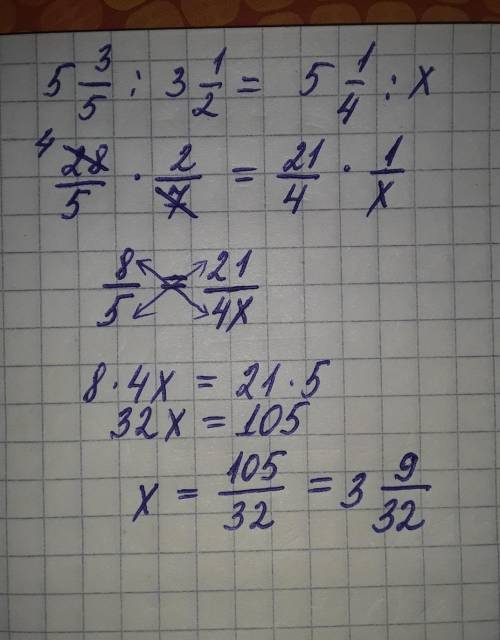 5 3/5 : 3 1/2 = 5 1/4 : x
4 28/5 · 2/7 = 21/4 · 1/x
8/5 = 21/4x
8·4x = 21·5
32x = 105
x = 105/32 = 3 9/32